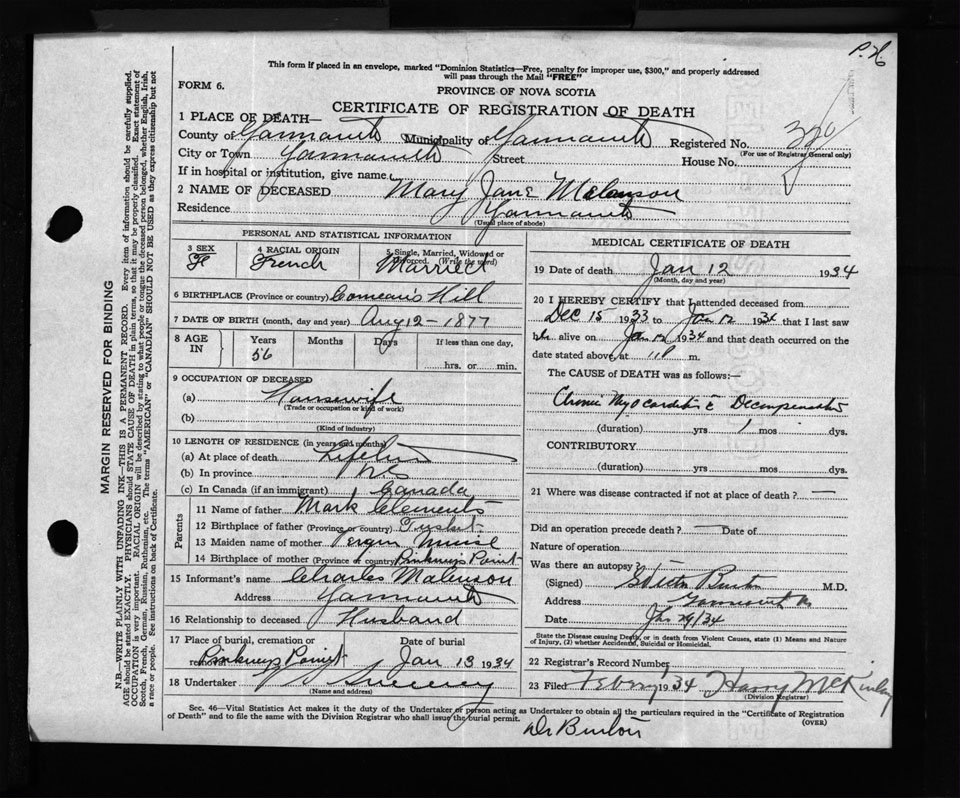 P.H
This form if placed in an envelope, marked "Dominion Statistics—Free, penalty for improper use, $300," and properly addressed
will pass through the Mail "FREE"
FORM 6.
PROVINCE OF NOVA SCOTIA
CERTIFICATE OF REGISTRATION OF DEATH
1 PLACE OF DEATH—
County of Yarmouth Municipality of Yarmouth Registered No.
(For use of Registrar General only)
City or Town Yarmouth Street House No.
If in hospital or institution, give name
2 NAME OF DECEASED Mary Jane Melanson
Residence Yarmouth
(Usual place of abode)
PERSONAL AND STATISTICAL INFORMATION
3 SEX F 4 RACIAL ORIGIN French 5 Single, Married, Widowed or Divorced. (Write the word) Married
6 BIRTHPLACE (Province or country) Comeau's Hill
7 DATE OF BIRTH (month, day and year) Aug 12 - 1877
8 AGE IN Years 56 Months Days If less than one day, hrs. or min.
9 OCCUPATION OF DECEASED
(a) Housewife
(Trade or occupation or kind of work)
(b)
(Kind of industry)
10 LENGTH OF RESIDENCE (in years and months)
(a) At place of death
(b) In province
(c) In Canada (if an immigrant) Canada
Parents
11 Name of father Mark Clements
12 Birthplace of father (Province or country) Tusket
13 Maiden name of mother
14 Birthplace of mother (Province or country) Pinkney's Point
15 Informant's name Charles Melenson
Address Yarmouth
16 Relationship to deceased Husband
17 Place of burial, cremation or removal Pinkney's Point Date of burial Jan 13 1934
18 Undertaker Sweeney
(Name and address)
MEDICAL CERTIFICATE OF DEATH
19 Date of death Jan 12 1934
(Month, day and year)
20 I HEREBY CERTIFY that I attended deceased from
Dec 15 1933 to Jan 12 1934 that I last saw
her alive on Jan 12 1934 and that death occurred on the
date stated above, at m.
The CAUSE of DEATH was as follows:—
Chronic Myocarditis c̄ Decompensation
(duration) yrs 1 mos dys.
CONTRIBUTORY
(duration) yrs mos dys.
21 Where was disease contracted if not at place of death? —
Did an operation precede death? — Date of
Nature of operation
Was there an autopsy?
(Signed) Burton M.D.
Address Yarmouth NS
Date Jan 29/34
State the Disease causing Death, or in death from Violent Causes, state (1) Means and Nature
of Injury, (2) whether Accidental, Suicidal or Homicidal.
22 Registrar's Record Number
23 Filed 1934 Harry McKinlay
(Division Registrar)
Sec. 46—Vital Statistics Act makes it the duty of the Undertaker or person acting as Undertaker to obtain all the particulars required in the "Certificate of Registration
of Death" and to file the same with the Division Registrar who shall issue the burial permit.
(OVER)
Dr Burton
MARGIN RESERVED FOR BINDING
N.B.—WRITE PLAINLY WITH UNFADING INK—THIS IS A PERMANENT RECORD. Every item of information should be carefully supplied.
AGE should be stated EXACTLY. PHYSICIANS should STATE CAUSE OF DEATH in plain terms, so that it may be properly classified. Exact statement of
OCCUPATION is very important. RACIAL ORIGIN will be described by stating to what people or tongue the deceased person belonged, whether English, Irish,
Scotch, French, German, Russian, Ruthenian, etc. The terms "AMERICAN" or "CANADIAN" SHOULD NOT BE USED as they express citizenship but not
a race or people. See instructions on back of Certificate.